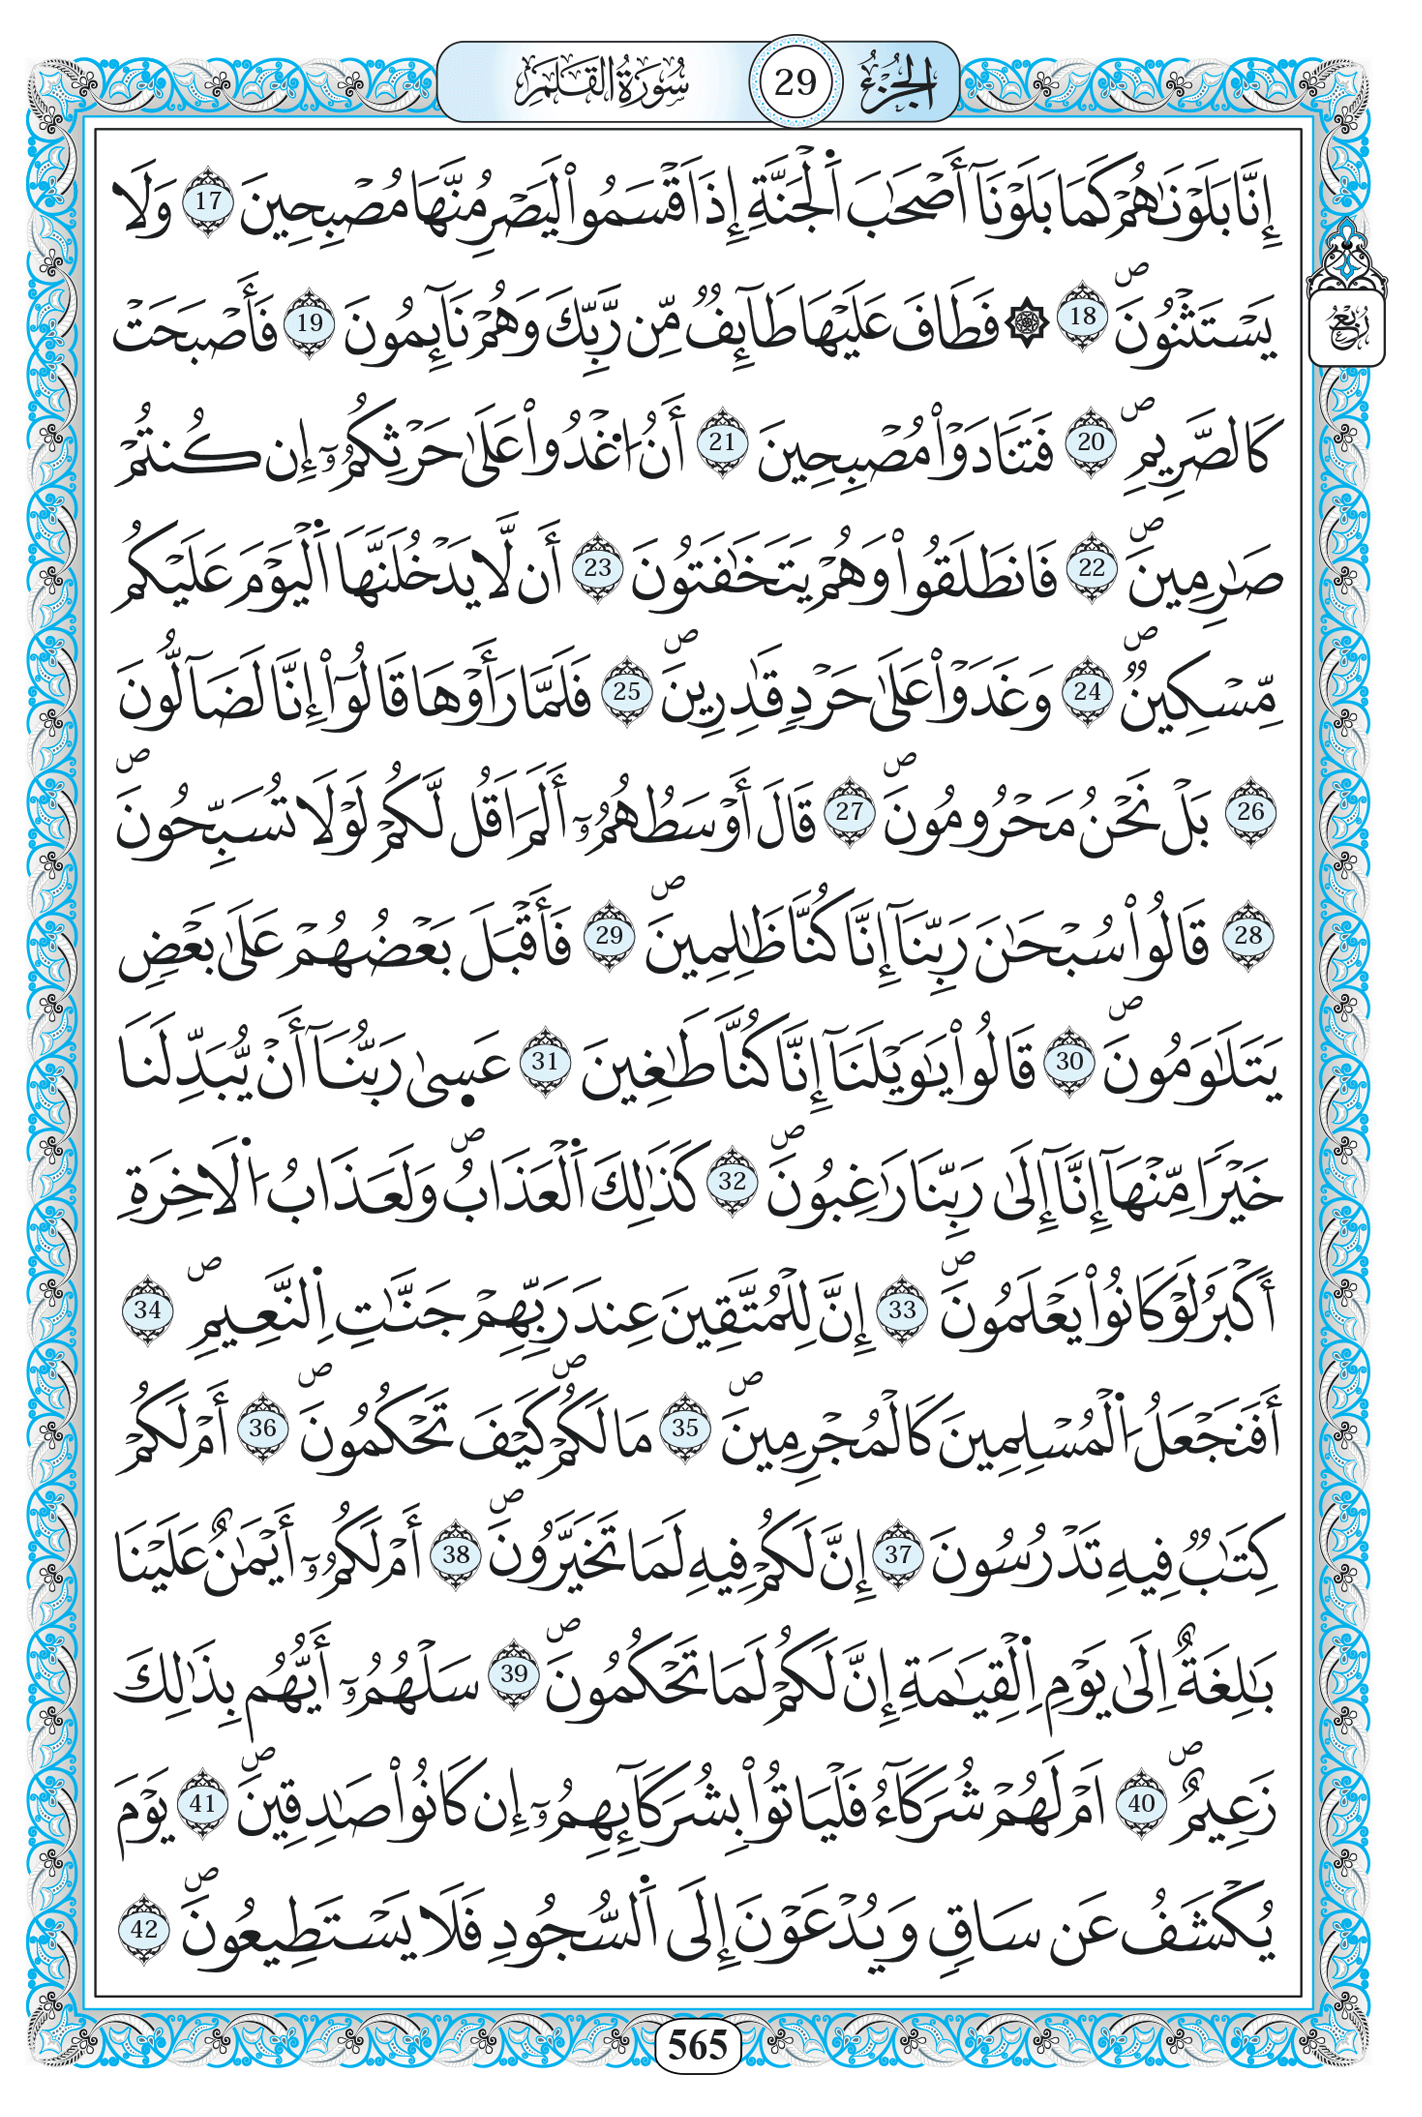 الجزء 29 سورة القلم
إِنَّا بَلَوْنَٰهُمْ كَمَا بَلَوْنَآ أَصْحَٰبَ اَ۬لْجَنَّةِ إِذَ اَقْسَمُواْ لَيَصْرِمُنَّهَا مُصْبِحِينَ 17 وَلَا
يَسْتَثْنُونَۖ 18 ۞ فَطَافَ عَلَيْهَا طَآئِفٞ مِّن رَّبِّكَ وَهُمْ نَآئِمُونَ 19 فَأَصْبَحَتْ
ربع
كَالصَّرِيمِۖ 20 فَتَنَادَوْاْ مُصْبِحِينَ 21 أَنُ اُ۟غْدُواْ عَلَىٰ حَرْثِكُمُۥٓ إِن كُنتُمْ
صَٰرِمِينَۖ 22 فَانطَلَقُواْ وَهُمْ يَتَخَٰفَتُونَ 23 أَن لَّا يَدْخُلَنَّهَا اَ۬لْيَوْمَ عَلَيْكُم
مِّسْكِينٞۖ 24 وَغَدَوْاْ عَلَىٰ حَرْدٖ قَٰدِرِينَۖ 25 فَلَمَّا رَأَوْهَا قَالُوٓاْ إِنَّا لَضَآلُّونَ
26 بَلْ نَحْنُ مَحْرُومُونَۖ 27 قَالَ أَوْسَطُهُمُۥٓ أَلَمَ اَقُل لَّكُمْ لَوْلَا تُسَبِّحُونَۖ
28 قَالُواْ سُبْحَٰنَ رَبِّنَآ إِنَّا كُنَّا ظَٰلِمِينَۖ 29 فَأَقْبَلَ بَعْضُهُمْ عَلَىٰ بَعْضٖ
يَتَلَٰوَمُونَۖ 30 قَالُواْ يَٰوَيْلَنَآ إِنَّا كُنَّا طَٰغِينَ 31 عَس۪ىٰ رَبُّنَآ أَنْ يُّبَدِّلَنَا
خَيْراٗ مِّنْهَآ إِنَّآ إِلَىٰ رَبِّنَا رَٰغِبُونَۖ 32 كَذَٰلِكَ اَ۬لْعَذَابُۖ وَلَعَذَابُ اُ۬لَاخِرَةِ
أَكْبَرُ لَوْ كَانُواْ يَعْلَمُونَۖ 33 إِنَّ لِلْمُتَّقِينَ عِندَ رَبِّهِمْ جَنَّٰتِ اِ۬لنَّعِيمِۖ 34
أَفَنَجْعَلُ اُ۬لْمُسْلِمِينَ كَالْمُجْرِمِينَۖ 35 مَا لَكُمْۖ كَيْفَ تَحْكُمُونَۖ 36 أَمْ لَكُمْ
كِتَٰبٞ فِيهِ تَدْرُسُونَ 37 إِنَّ لَكُمْ فِيهِ لَمَا تَخَيَّرُونَۖ 38 أَمْ لَكُمُۥٓ أَيْمَٰنٌ عَلَيْنَا
بَٰلِغَةٌ اِلَىٰ يَوْمِ اِ۬لْقِيَٰمَةِ إِنَّ لَكُمْ لَمَا تَحْكُمُونَۖ 39 سَلْهُمُۥٓ أَيُّهُم بِذَٰلِكَ
زَعِيمٌۖ 40 اَمْ لَهُمْ شُرَكَآءُ فَلْيَاتُواْ بِشُرَكَآئِهِمُۥٓ إِن كَانُواْ صَٰدِقِينَۖ 41 يَوْمَ
يُكْشَفُ عَن سَاقٖ وَيُدْعَوْنَ إِلَى اَ۬لسُّجُودِ فَلَا يَسْتَطِيعُونَۖ 42
565